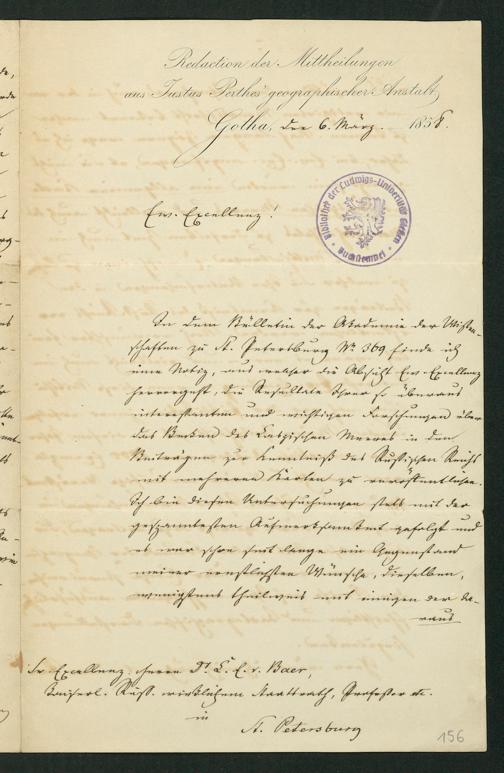 Redaction der Mittheilungen
aus Justus Perthes' geographischer Anstalt
Gotha, den 6. März. 1858.
Bibliothek der Ludwigs-Universität Gießen
Buchstempel
Ew. Excellenz!
In dem Bülletin der Akademie der Wissen-
schaften zu St. Petersburg No 369 finde ich
eine Notiz, aus welcher die Absicht Ew. Excellenz
hervorgeht, die Resultate Ihrer so überaus
interessanten und wichtigen Forschungen über
das Becken des Caspischen Meeres in den
Beiträgen zur Kenntniß des Russischen Reichs
mit mehreren Karten zu veröffentlichen.
Ich bin diesen Untersuchungen stets mit der
gespanntesten Aufmerksamkeit gefolgt und
es war schon seit lange ein Gegenstand
meiner ernstlichsten Wünsche, dieselben,
wenigstens theilweis mit einigen der da-
raus
Sr. Excellenz Herrn Dr. C. E. v. Baer,
Kaiserl. Russ. wirklichem Staatsrath, Professor etc.
in
St. Petersburg
156